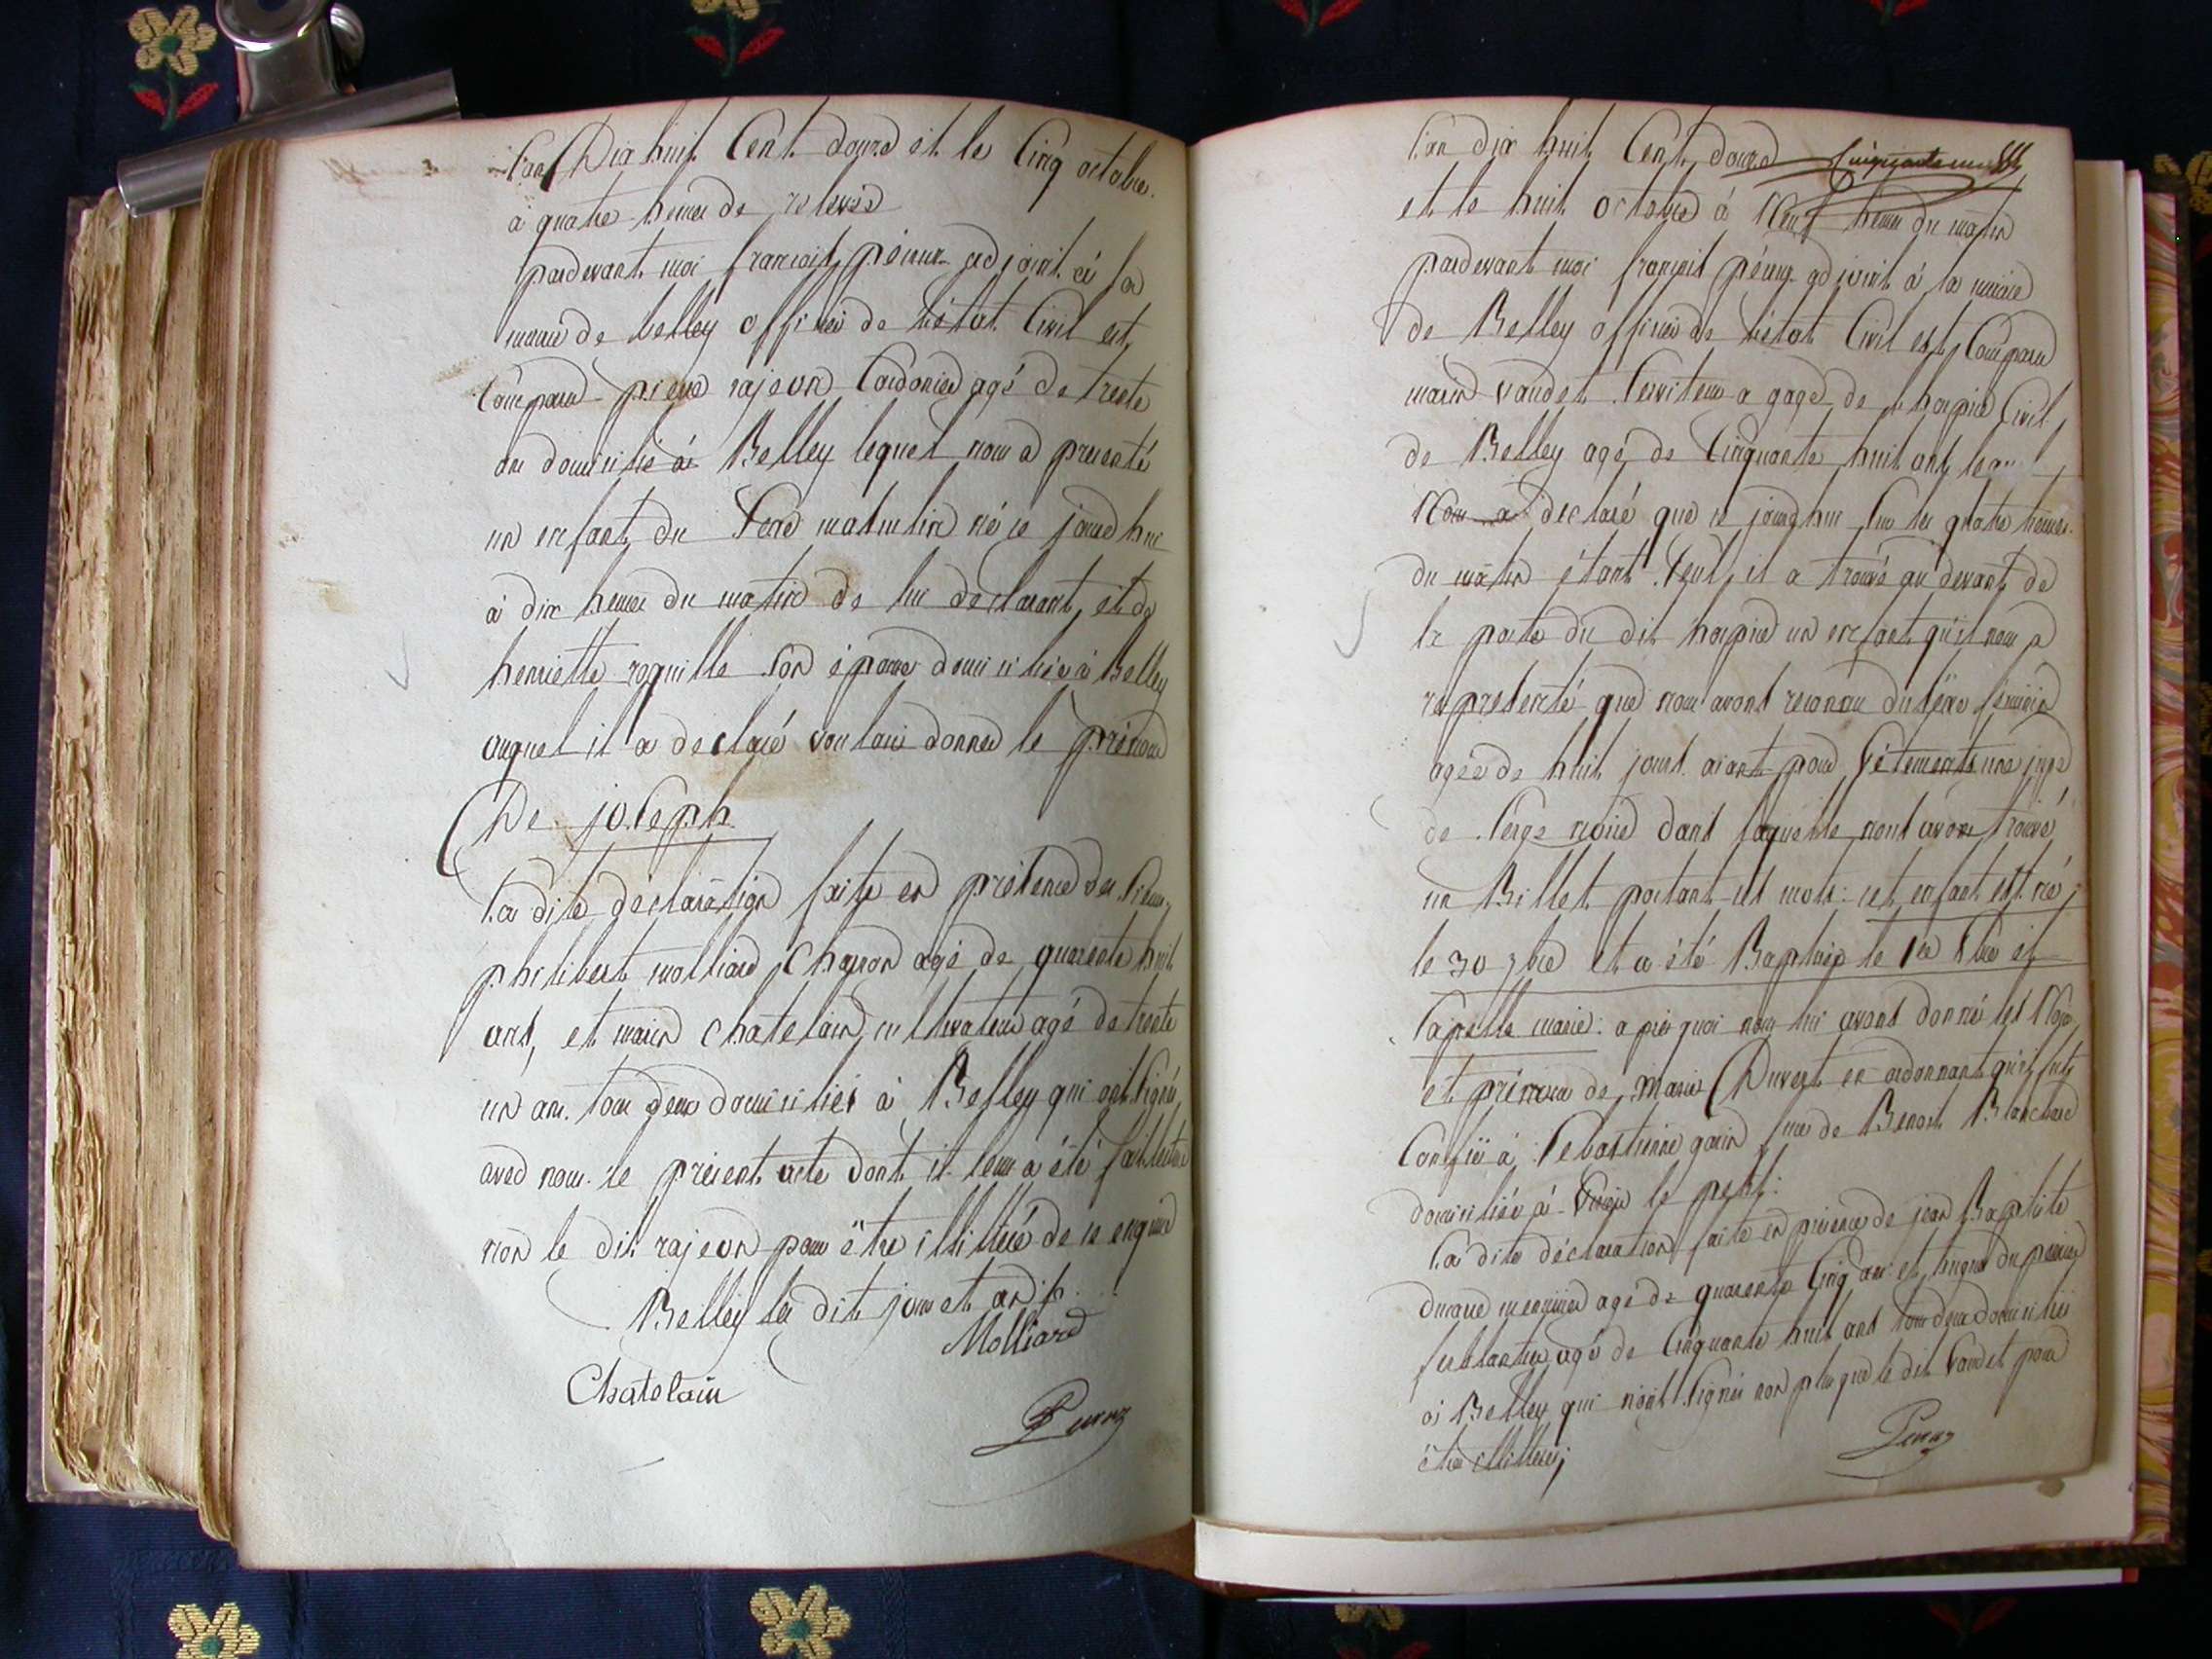 L'an Dix huit Cent douze et le Cinq octobre
à quatre heures de relevée
pardevant moi françois péruz adjoint à la
mairie de belley officier de l'état Civil est
Comparu pierre rajeon Cordonier agé de trente
ans domicilié à Belley lequel nous a presenté
un enfant du sexe masculin né ce jourd'hui
à dix heures du matin de lui declarant et de
henriette roquille son épouse domiciliée à Belley
auquel il a declaré vouloir donner le prénom
De joseph
La dite déclaration faite en présence des sieurs
philibert molliard Charron agé de quarente huit
ans, et marin chatelain cultivateur agé de trente
un ans tous deux domiciliés à Belley qui ont signé
avec nous le présent acte dont il leur a été fait lecture
non le dit rajeon pour être illitteré de ce enquis
Belley les dits jour et an
Molliard
Chatelain
Peruz
L'an dix huit Cent douze
et le huit octobre à Neuf heures du matin
pardevant moi françois péruz adjoint à la mairie
de Belley officier de l'état Civil est Comparu
marin vaudet serviteur a gage de l'hospice Civil
de Belley agé de Cinquante huit ans lequel
Nous a déclaré que ce jourd'hui sur les quatre heures
du matin étant seul, il a trouvé au devant de
la porte du dit hospice un enfant qu'il nous a
représenté que nous avons reconnu du séxe féminin
agée de huit jours aiant pour vétements une jupe
de serge noire dans laquelle nous avons trouvé
un Billet portant ces mots: cet enfant est né
le 30 7bre et a été Baptisée le 1er 8bre et
s'apelle marie: a près quoi nous lui avons donné les Nom
et prénom de Marie Duvert en ordonnant qu'il fut
Confié à Sebastienne garin fme de Benoit Blanchard
domiciliée à le petit:
La dite déclaration faite en présence de jean Baptiste
agé de quarente Cinq ans et
ferblantier agé de Cinquante huit ans tous deux domiciliés
à Belley qui n'ont signés non plus que le dit vaudet pour
être illitterés;
Peruz